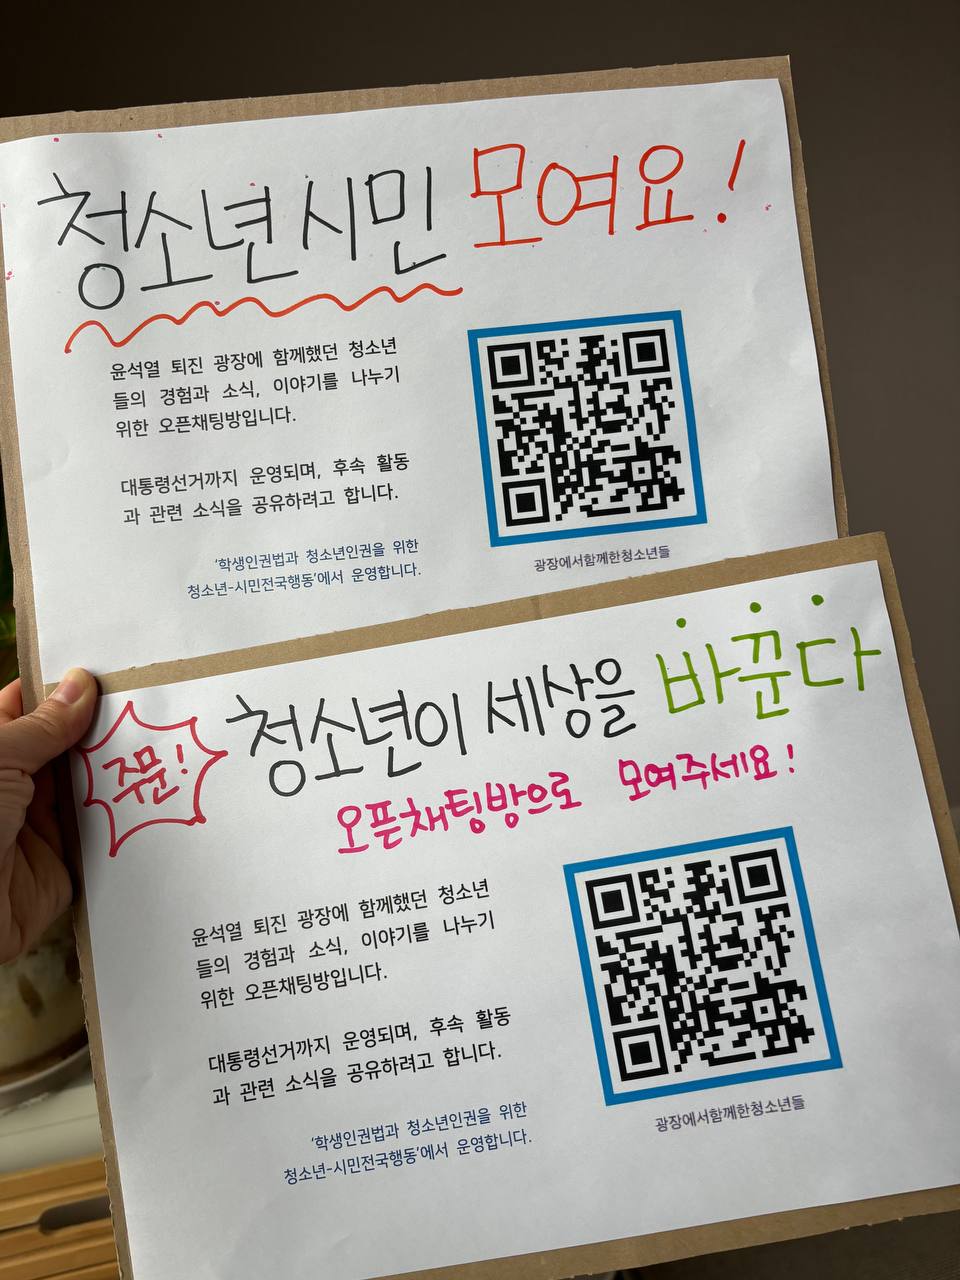 청소년시민 모여요!
윤석열 퇴진 광장에 함께했던 청소년
들의 경험과 소식, 이야기를 나누기
위한 오픈채팅방입니다.
대통령선거까지 운영되며, 후속 활동
과 관련 소식을 공유하려고 합니다.
'학생인권법과 청소년인권을 위한
청소년-시민전국행동'에서 운영합니다.
광장에서함께한청소년들
주문!
청소년이 세상을 바꾼다
오픈채팅방으로 모여주세요!
윤석열 퇴진 광장에 함께했던 청소년
들의 경험과 소식, 이야기를 나누기
위한 오픈채팅방입니다.
대통령선거까지 운영되며, 후속 활동
과 관련 소식을 공유하려고 합니다.
'학생인권법과 청소년인권을 위한
청소년-시민전국행동'에서 운영합니다.
광장에서함께한청소년들